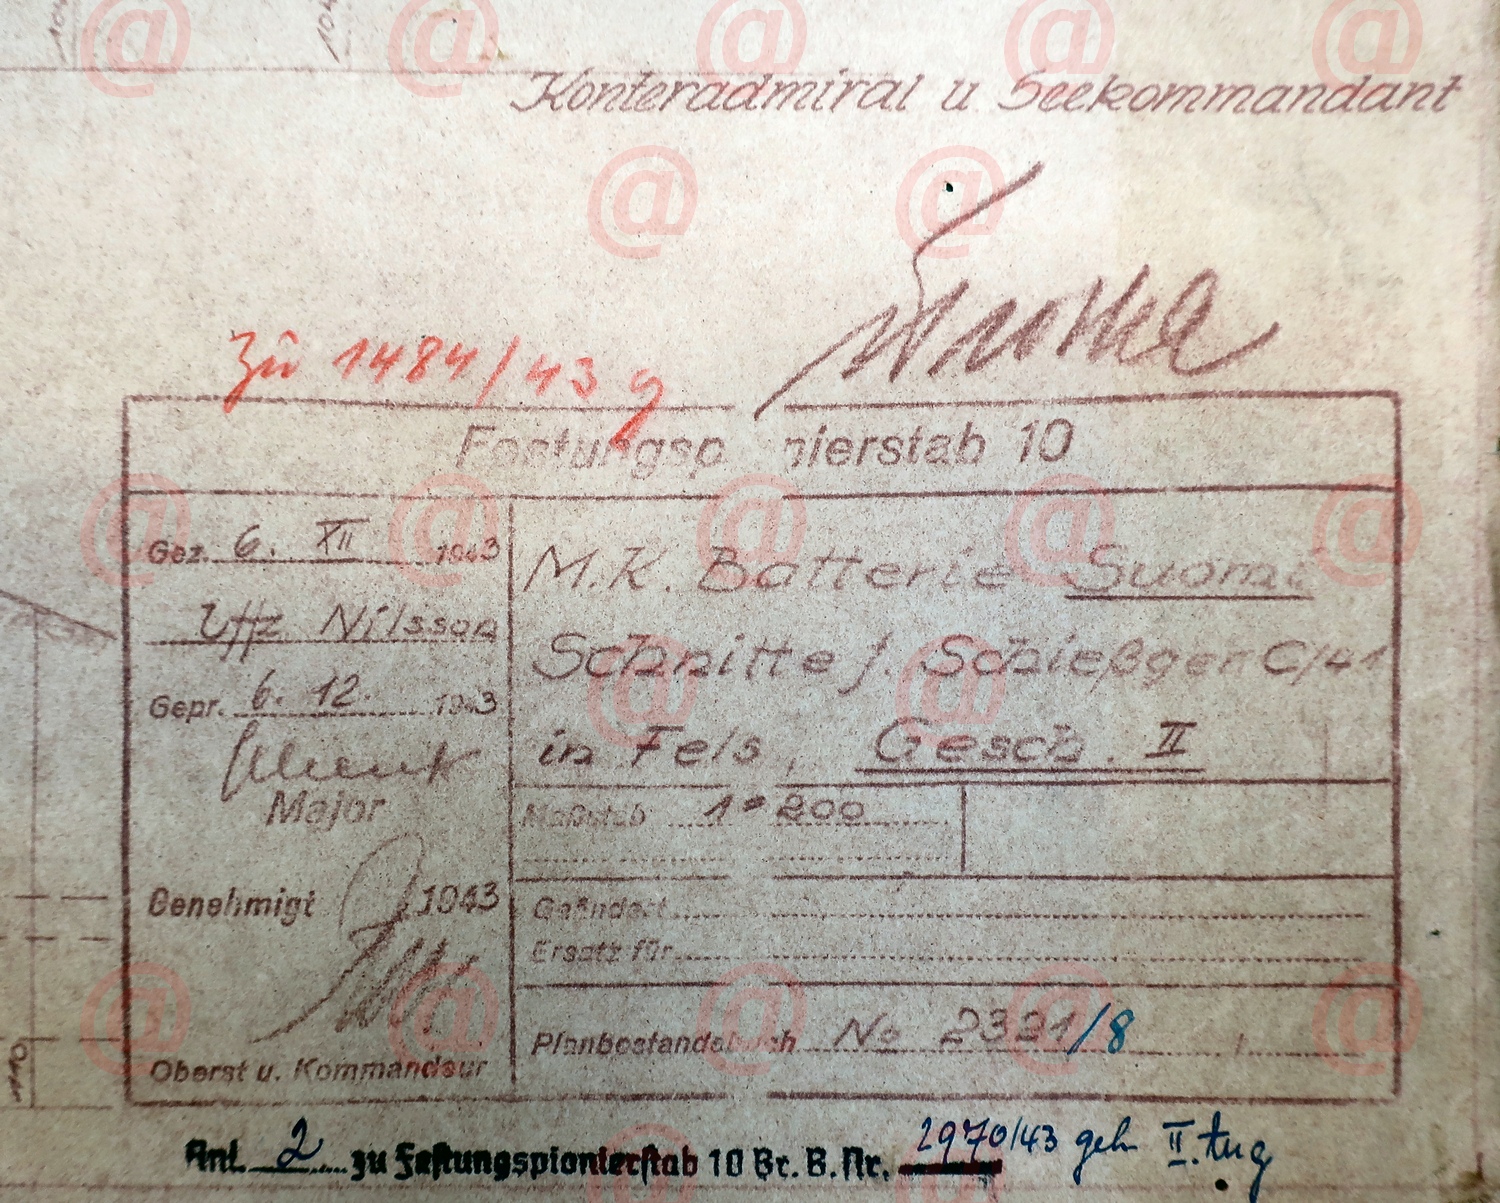 Konteradmiral u Seekommandant
Zu 1484/43 g
Festungspionierstab 10
Gez. 6. XII 1943
Uffz Nilsson
Gepr. 6. 12. 1943
Major
Genehmigt 1943
Oberst u. Kommandeur
M.K. Batterie Suomi
Schnitte f. Schießger. C/41
in Fels, Gesch. II
Maßstab 1 = 200
Geändert
Ersatz für
Planbestandsbuch No 2321/8
Anl. 2 zu Festungspionierstab 10 Br. B. Nr. 2970/43 geh II. Aug
110